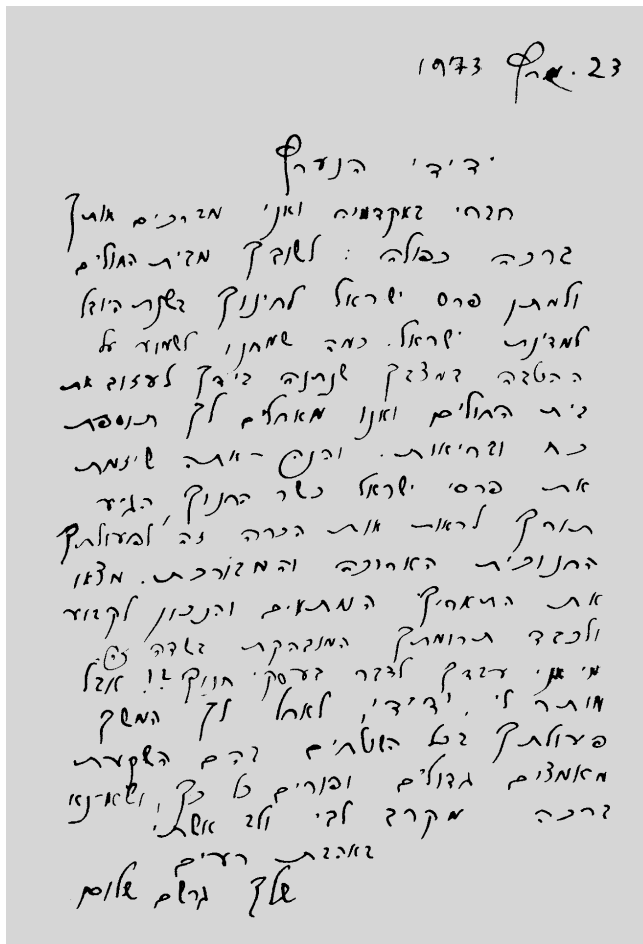 23. מרץ 1973
ידידי הנערץ
חברי באקדמיה ואני מברכים אותך
ברכה כפולה: לשובך מבית החולים
ולמתן פרס ישראל לחינוך בשנת היובל
למדינת ישראל. כמה שמחנו לשמוע על
ההטבה במצבך שנתנה בידך לעזוב את
בית החולים ואנו מאחלים לך תוספת
כח ובריאות. והנה - אתה שיזמת
את פרסי ישראל כשר החנוך, הגיע
תורך לראות אות הכרה זה לפעולתך
החנוכית הארוכה והמבורכת. מצאו
את התאריך המתאים והנכון לקבוע
ולכבד תרומתך המובהקת בשדה זה.
מי אני עבדך לדבר בעסקי חנוך?! אבל
מותר לי, ידידי, לאחל לך המשך
פעולתך בכל השטחים בהם השקעת
מאמצים גדולים ופורים כל כך, ושא-נא
ברכה מקרב לבי ולב אשתי.
באהבת רעים
שלך גרשם שלום